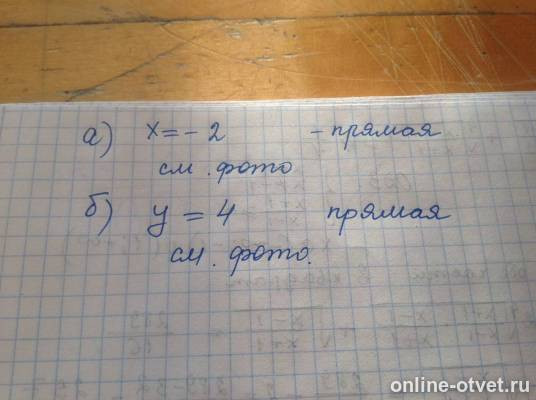 а) x = - 2 - прямая
см. фото
б) y = 4 прямая
см. фото.
online-otvet.ru